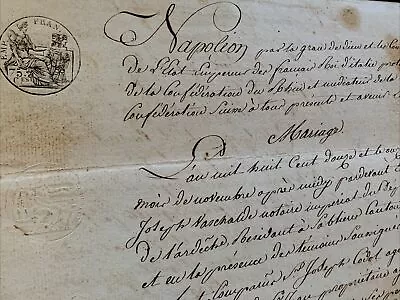 FRAN
Napoléon par la grace de dieu et les Con
de L'Etat Empereur des français Roi d'italie prot
de la Confédération du Rhin et médiateur de la
Confédération Suisse à tous présents et avenir
Mariage.
L'an mil huit Cent douze et le on
mois de novembre après midy pardevant
Joseph Vaschalde notaire impérial
de L'ardèche Residant à Sablière Canton
et en la présence des temoins Soussignés
Joseph
propriétaire